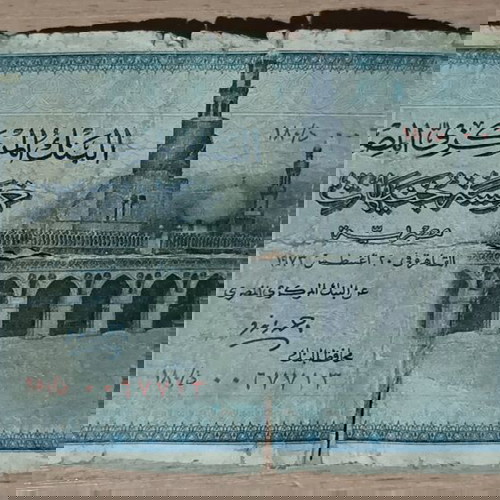 البنك المركزى المصرى
١٨٠/ض
خمسة جنيهات
مصرية
القاهرة فى ٢٠ أغسطس ١٩٧٣
عن البنك المركزى المصرى
محافظ البنك
١٨٠/ض ٠٠٦٧٧١٣